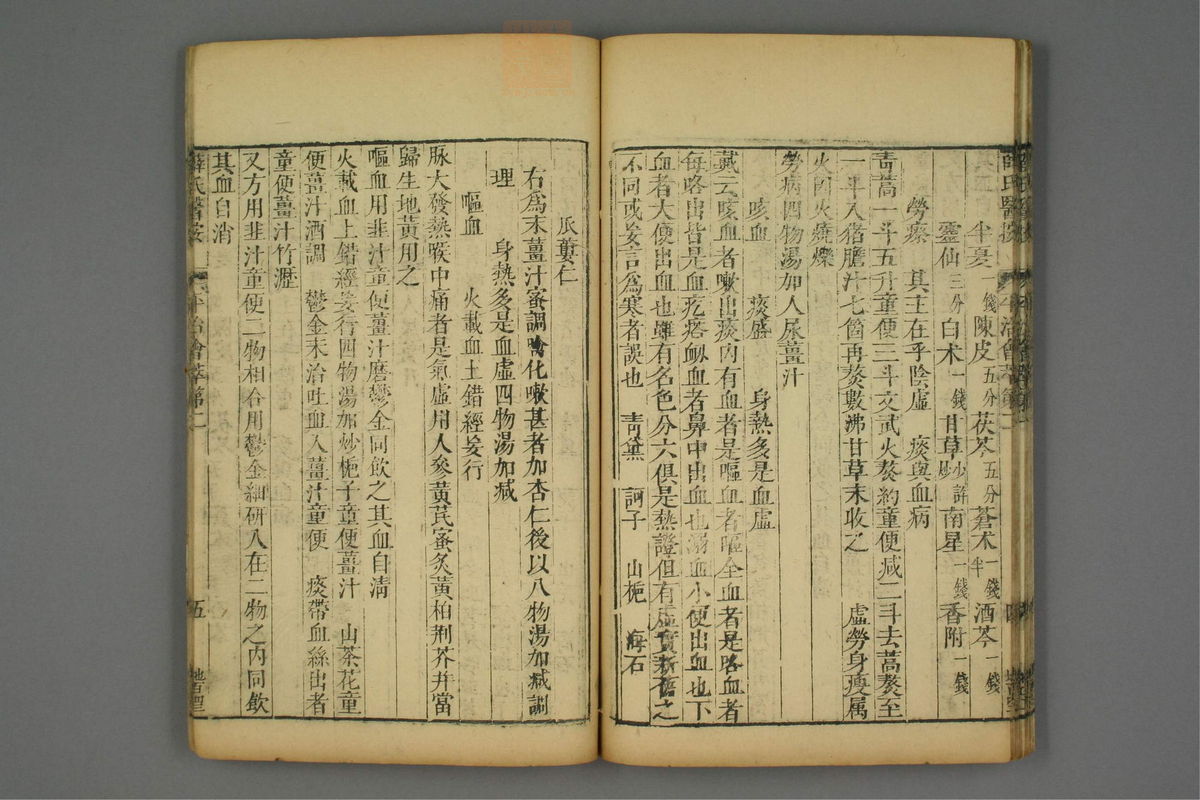 半夏一錢 陳皮五分 茯苓五分 蒼朮一錢半 酒芩一錢
靈仙三分 白朮一錢 甘草少許炒 南星一錢 香附一錢
勞瘵 其主在乎陰虛 痰與血病
青蒿一斗五升童便三斗文武火熬約童便減二斗去蒿熬至
一斗入猪膽汁七箇再熬數沸甘草末收之 虛勞身瘦属
火因火燒爍
勞病四物湯加人尿薑汁
咳血 痰盛 身熱多是血虛
戴云咳血者嗽出痰內有血者是嘔血者嘔全血者是咯血者
每咯出皆是血疙瘩衂血者鼻中出血也溺血小便出血也下
血者大便出血也雖有名色分六俱是熱證但有虛實新舊之
不同或妄言爲寒者誤也 青黛 訶子 山梔 海石
瓜蔞仁
右爲末薑汁蜜調噙化嗽甚者加杏仁後以八物湯加減調
理 身熱多是血虛四物湯加減
嘔血 火載血上錯經妄行
脉大發熱喉中痛者是氣虛用人參黃芪蜜炙黃柏荆芥幷當
歸生地黃用之
嘔血用韭汁童便薑汁磨鬱金同飲之其血自淸
火載血上錯經妄行四物湯加炒梔子童便薑汁 山茶花童
便薑汁酒調 鬱金末治吐血入薑汁童便 痰帶血絲出者
童便薑汁竹瀝
又方用韭汁童便二物相合用鬱金細研入在二物之內同飲
其血自消
薛氏醫按 平治會萃第二 五